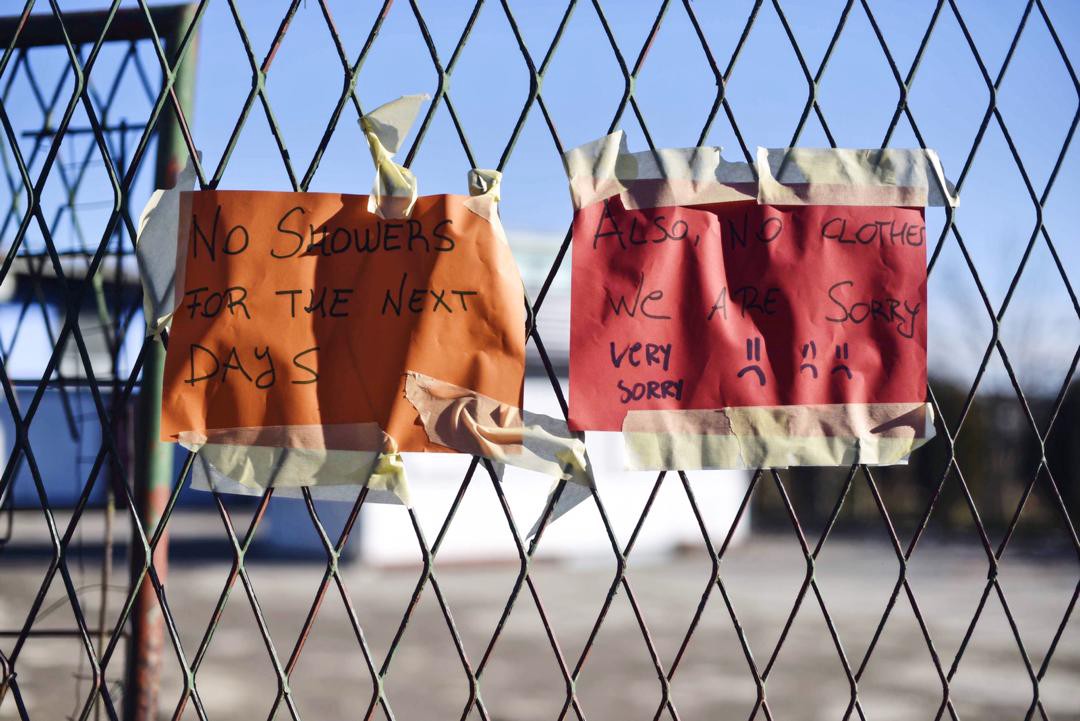 No SHOWERS
FOR THE NEXT
DAYS
ALSO, NO CLOTHES
We ARE SORRY
VERY
SORRY